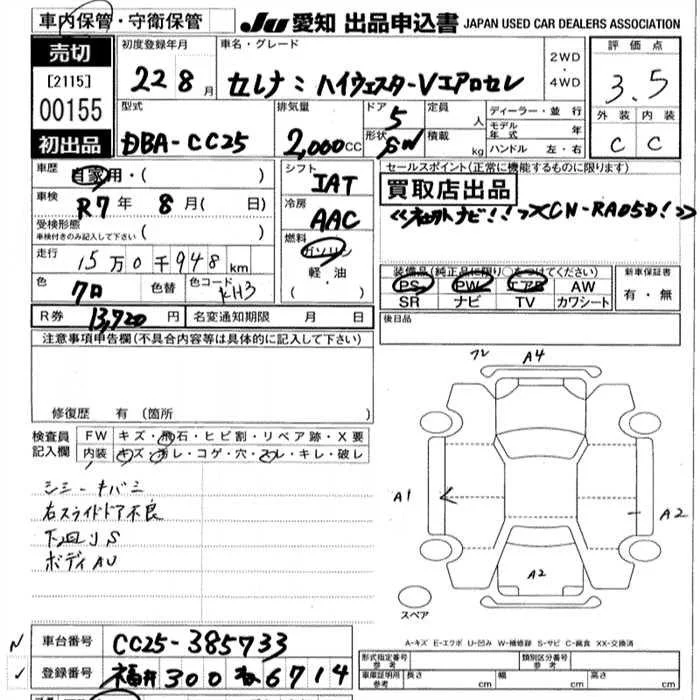 車内保管・守衛保管
JU 愛知 出品申込書 JAPAN USED CAR DEALERS ASSOCIATION
売切
[2115]
00155
初出品
初度登録年月
22 8月
車名・グレード
セレナ ハイウェスターVエアロセレ
2WD
・
4WD
評価点
3.5
外装 内装
C C
型式
DBA-CC25
排気量
2,000cc
ドア 5
形状 SW
定員 人
積載 kg
ディーラー・並行
モデル年式 年
ハンドル 左・右
車歴
自家用・( )
車検
R7年 8月( 日)
受検形態
車検付きのみ記入して下さい ( )
走行
15万0千948km
色
クロ 色替
色コード
KH3
シフト
IAT
冷房
AAC
燃料
ガソリン
軽・油
( )
セールスポイント(正常に機能するものに限ります)
買取店出品
ナビ!!>
CN-RA05D!>>
装備品(純正品に限り○をつけてください)
PS PW エアB AW
SR ナビ TV カワシート
新車保証書
有・無
R券 13,920円
名変通知期限 月 日
後日品
注意事項申告欄(不具合内容等は具体的に記入して下さい)
修復歴 有(箇所 )
検査員
記入欄
FW キズ・飛石・ヒビ割・リペア跡・X要
内装 キズ・汚レ・コゲ・穴・スレ・キレ・破レ
シミ-キバミ
右スライドドア不良
下回りS
ボディAU
フレ A4
A1
A2
A2
スペア
A-キズ E-エクボ U-凹み W-補修跡 S-サビ C-腐食 XX-交換済
車台番号 CC25-385733
登録番号 福井 300 6714
形式指定番号
参考
類別区分番号
参考
車庫証明用
参考
長さ cm
幅 cm
高さ cm